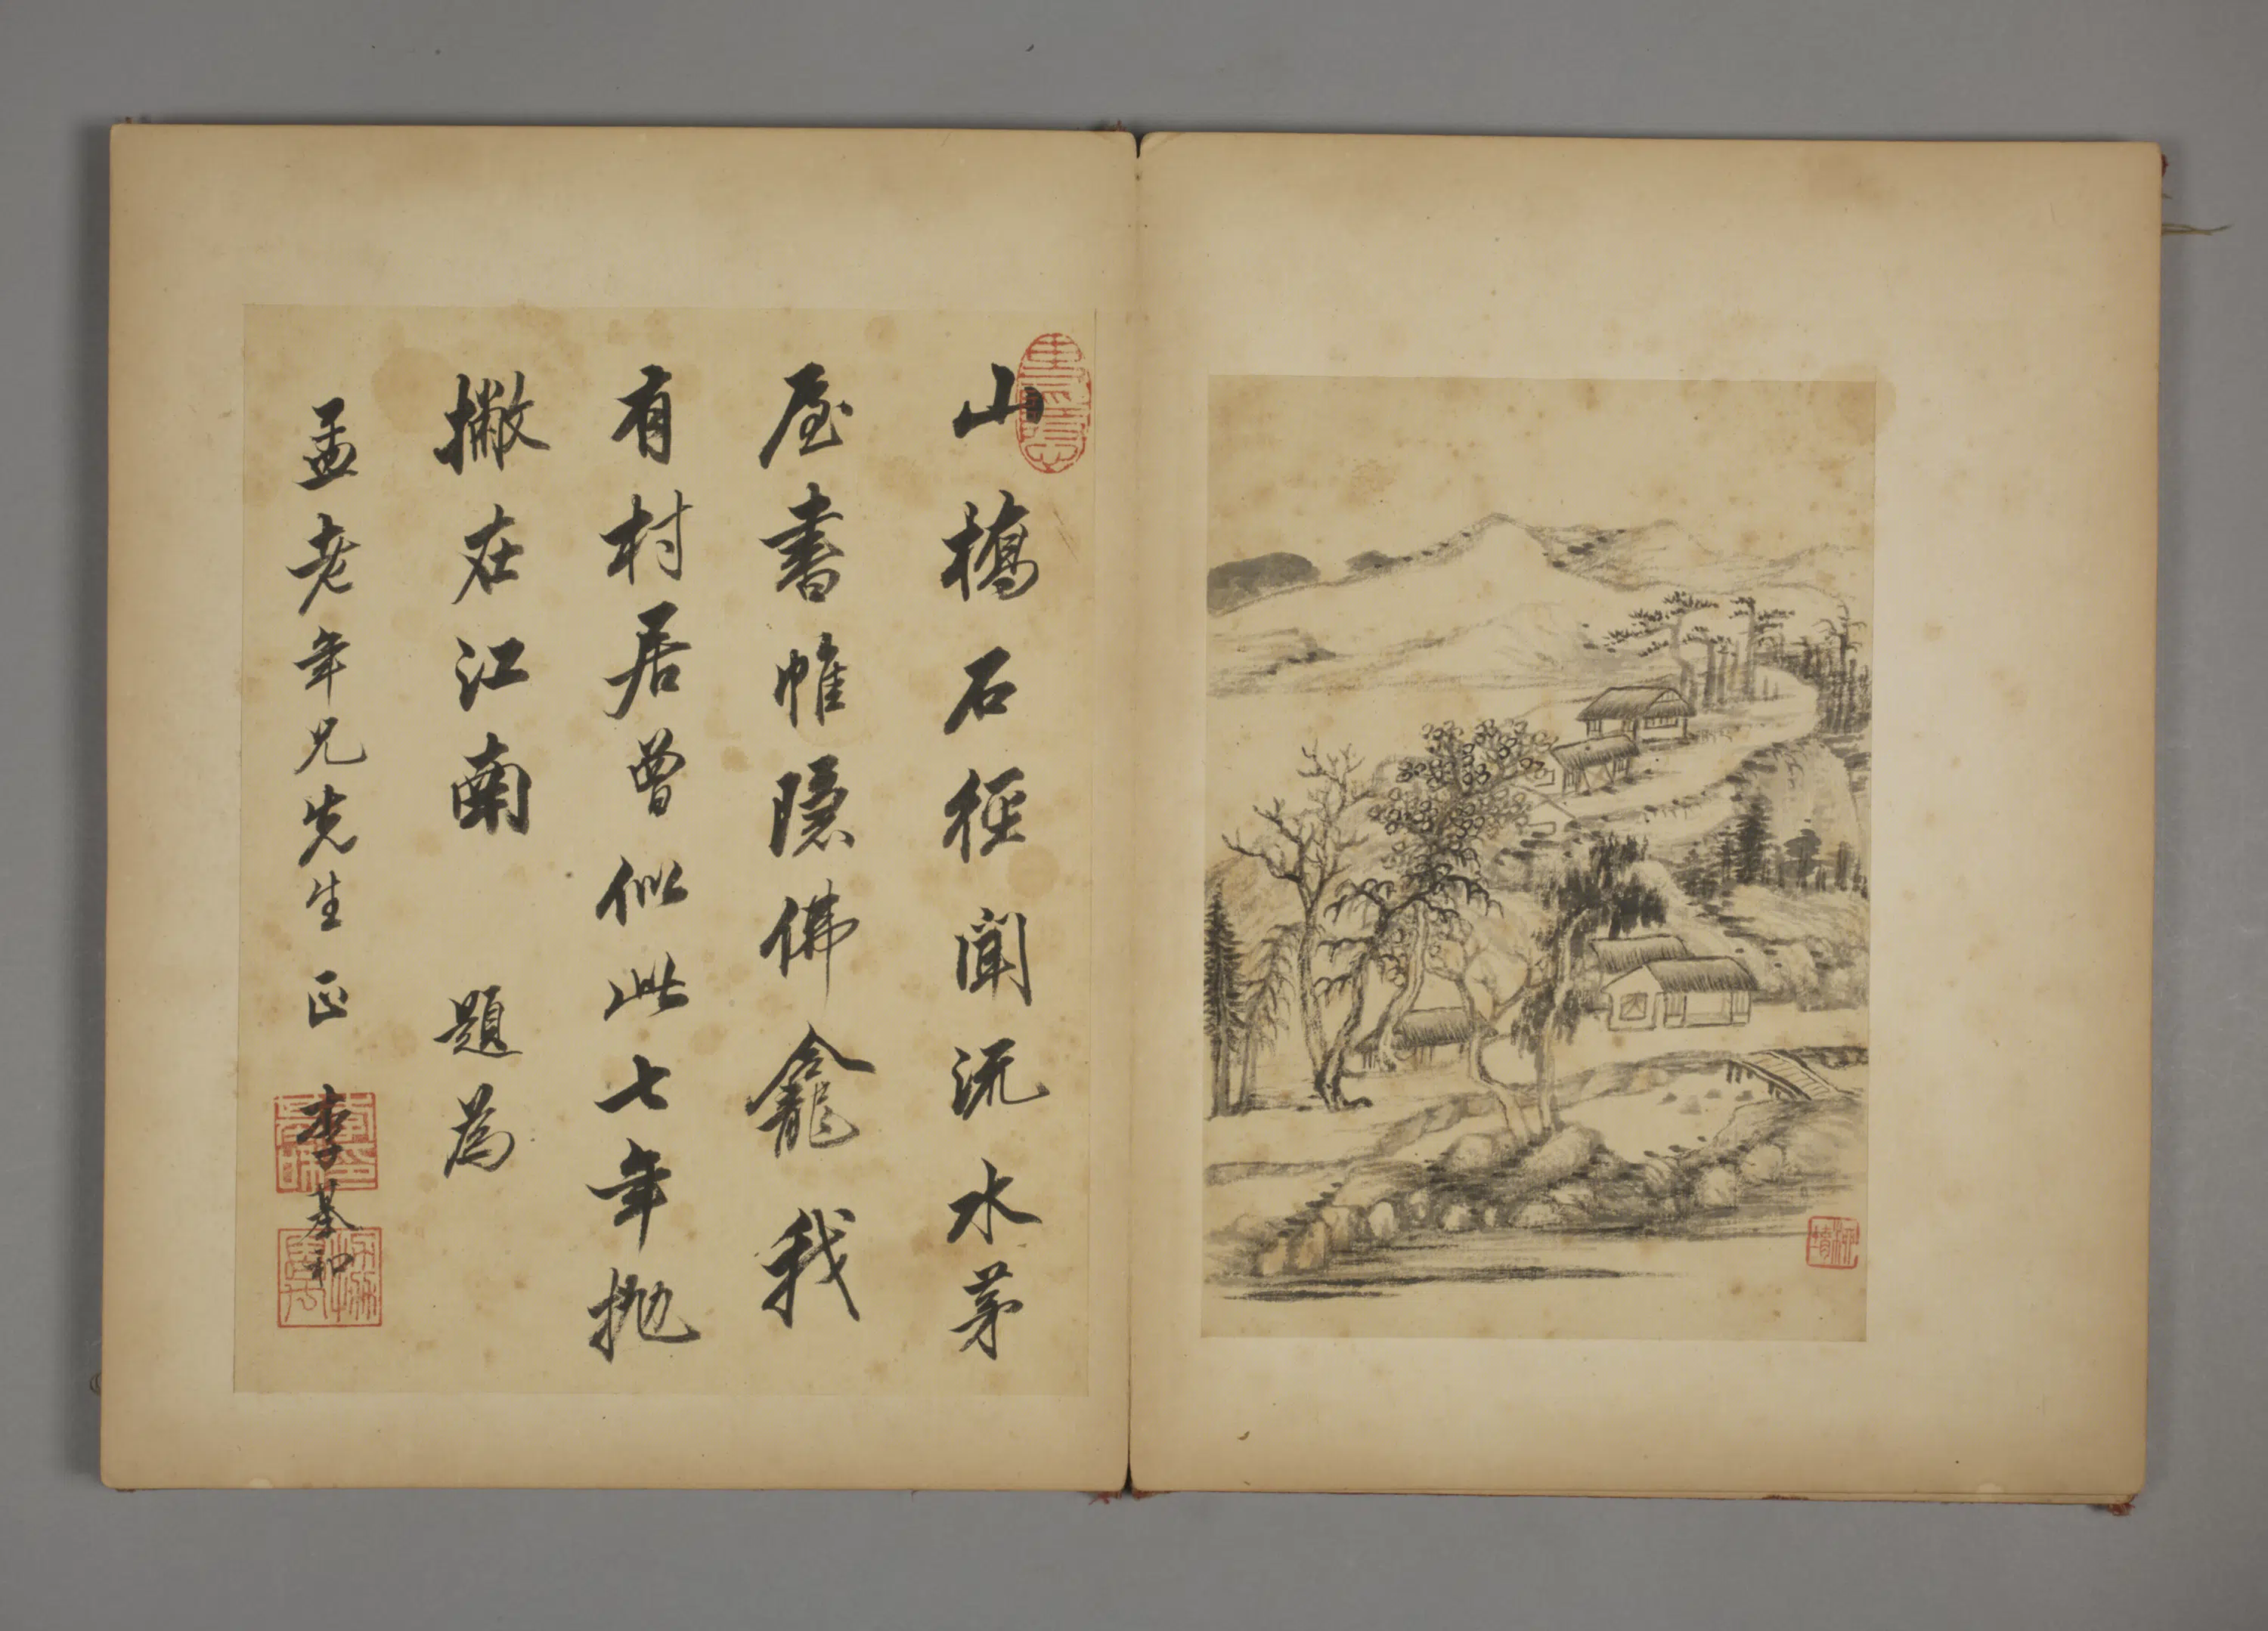 山橋石徑聞流水茅
屋書帷隱佛龕我
有村居曾似此七年拋
撇在江南 題為
孟老年兄先生正 李基和